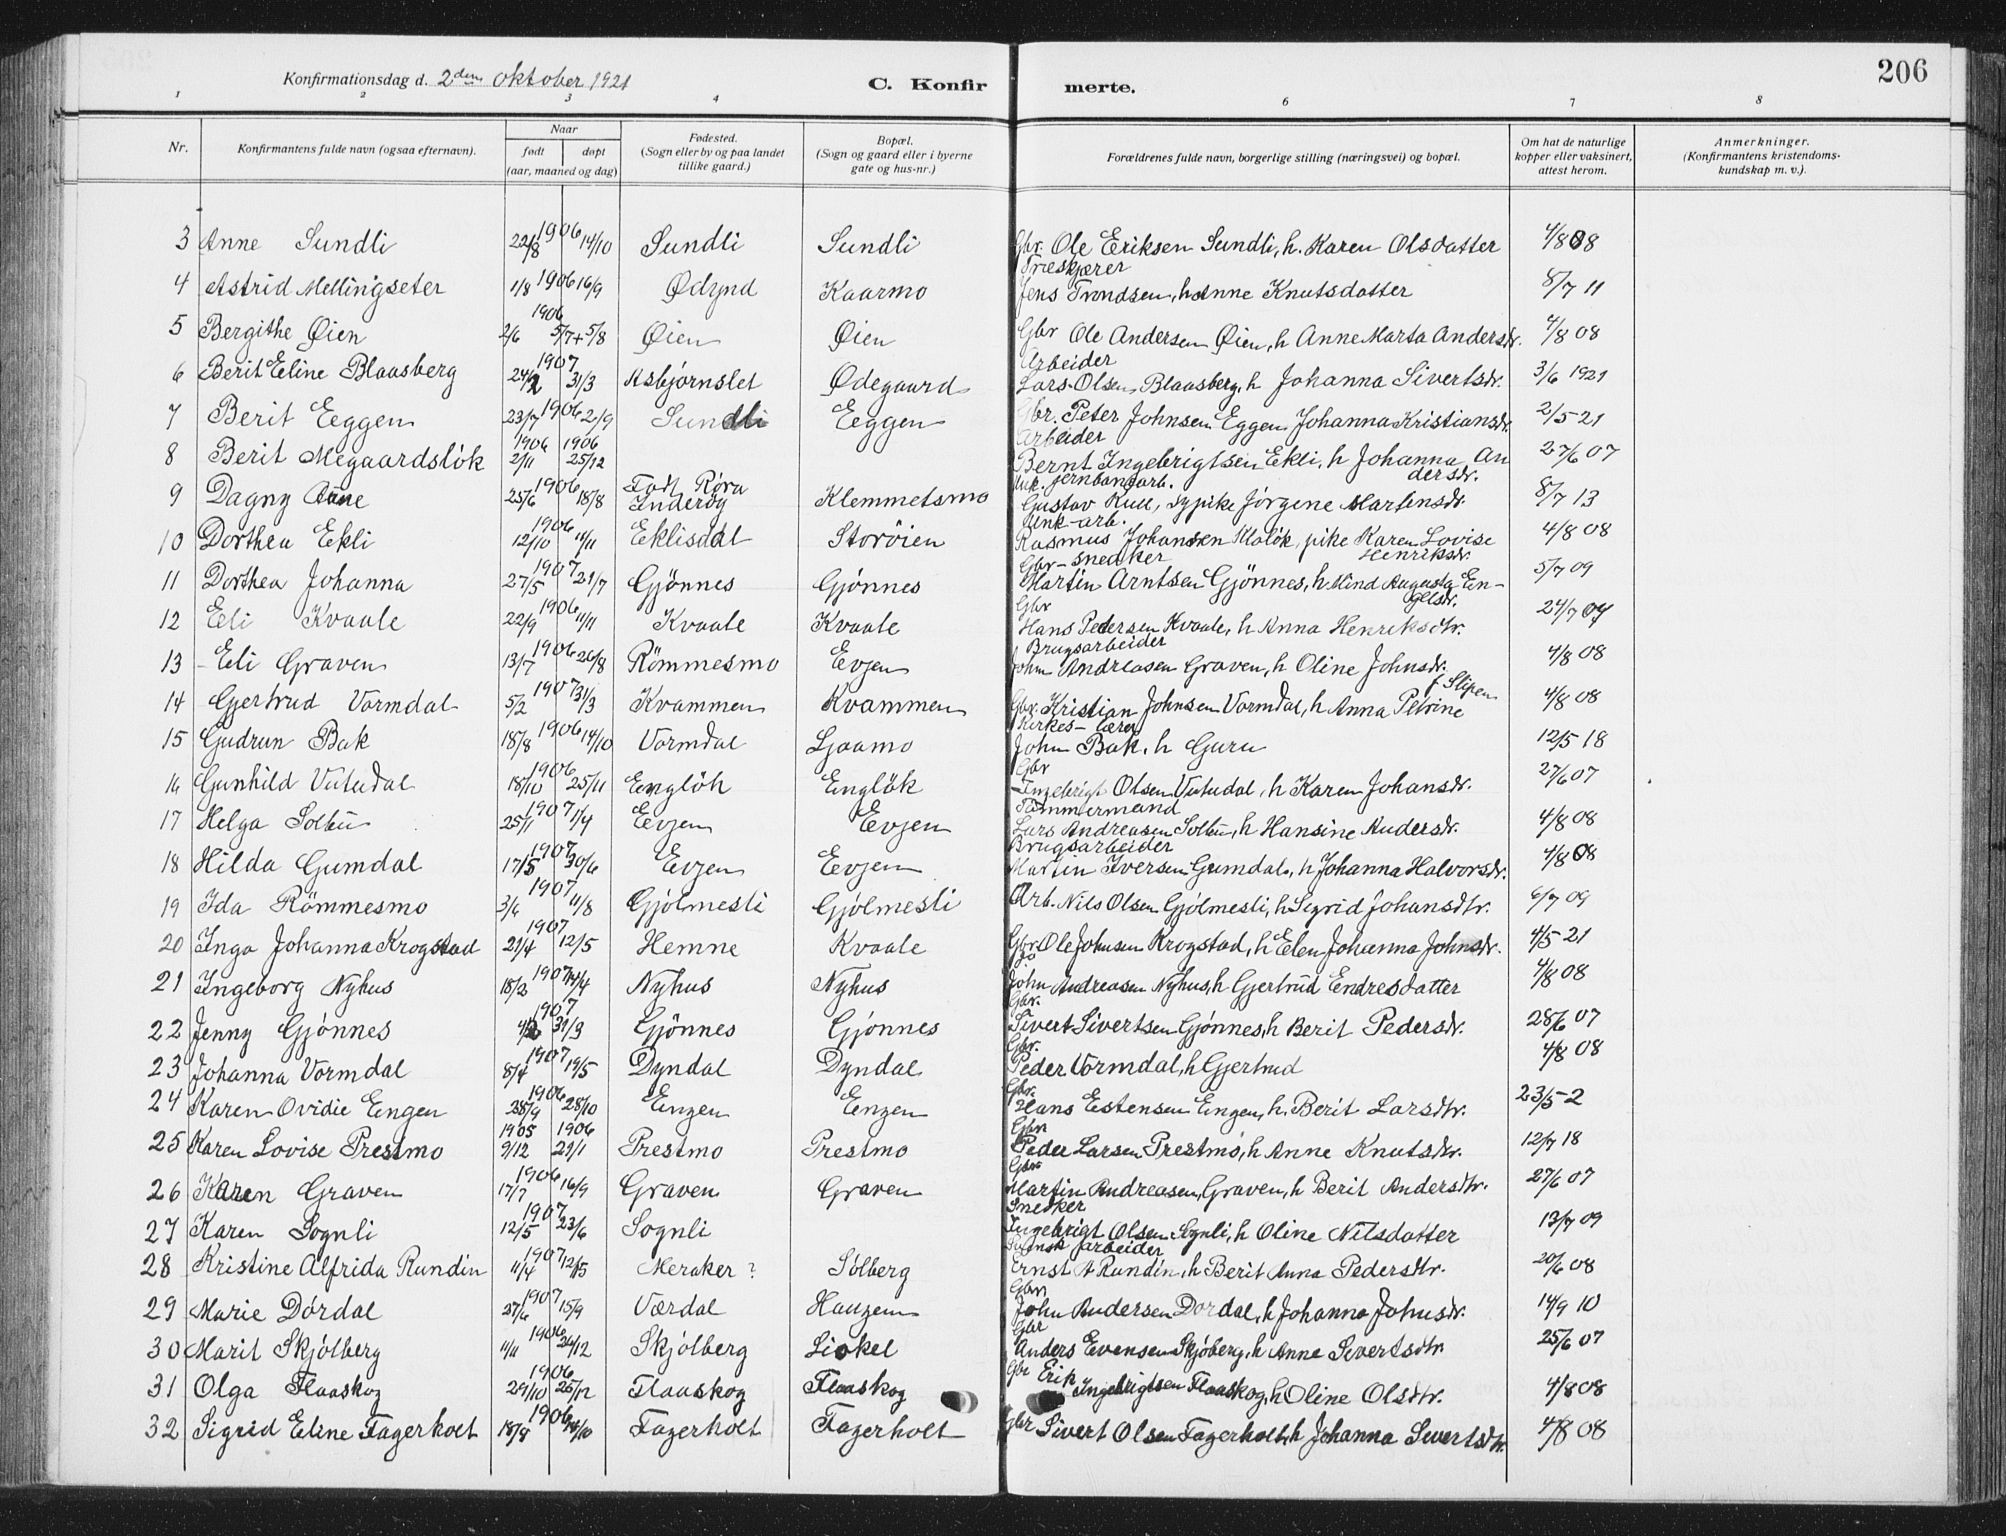 Konfirmationsdag d. 2den oktober 1921 C. Konfir merte. 206
1 2 3 4 6 7 8
Nr. Konfirmantens fulde navn (ogsaa efternavn). Naar født døpt (aar, maaned og dag) Fødested. (Sogn eller by og paa landet tillike gaard.) Bopæl. (Sogn og gaard eller i byerne gate og hus-nr.) Forældrenes fulde navn, borgerlige stilling (næringsvei) og bopæl. Om hat de naturlige kopper eller vaksinert, attest herom. Anmerkninger. (Konfirmantens kristendoms- kundskap m. v.).
3 Anne Sundli 22/8 1906 14/10 Sundli Sundli Gbr. Ole Eriksen Sundli, h. Karen Olsdatter 4/8 08
4 Astrid Mellingseter 1/8 1906 16/9 Ødynd Kaarmo Træskjærer Jens Trondsen, h Anne Knutsdatter 8/7 11
5 Bergithe Øien 2/6 1906 5/7+5/8 Øien Øien Gbr Ole Andersen Øien, h Anne Marta Andersdr. 4/8 08
6 Berit Eline Blaasberg 24/2 1907 31/3 Asbjørnslet Ødegaard Arbeider Lars Olsen Blaasberg, h Johanna Sivertsdr. 3/6 1921
7 Berit Eggen 23/7 1906 2/9 Sundli Eggen Gbr. Peter Johnsen Eggen Johanna Kristiansdr. 2/5 21
8 Berit Megaardsløk 1906 2/11 1906 25/12 Arbeider Bernt Ingebrigtsen Ekli, h Johanna Andersdr. 27/6 07
9 Dagny Aune 25/6 1906 18/8 Født Røra Inderøy Klemmetsmo Unk. jernbanearb. Gustav Kull, sypike Jørgine Martinsdr. 8/7 13
10 Dorthea Ekli 12/10 1906 11/11 Eklisdal Storøien Unk-arb. Rasmus Johansen Kaløk, pike Karen Lovise Henriksdr. 4/8 08
11 Dorthea Johanna 27/5 1907 21/7 Gjönnes Gjønnes Gbr-snedker Martin Arntsen Gjönnes, h Mind Augusta Engelsdr. 5/7 09
12 Eli Kvaale 22/9 1906 11/11 Kvaale Kvaale Gbr Hans Pedersen Kvaale, h Anna Henriksdtr. 24/7 07
13 Eli Graven 13/7 1906 26/8 Römmesmo Evjen Brugsarbeider John Andreasen Graven, h Oline Johnsdr. 4/8 08
14 Gjertrud Vormdal 5/2 1907 31/3 Kvammen Kvammen Gbr. Kristian Johnsen Vormdal, h Anna Petrine f Slipen 4/8 08
15 Gudrun Bak 18/8 1906 14/10 Vormdal Ljaamo Kirkes-lærer John Bak, h Guru 12/5 18
16 Gunhild Vutudal 18/10 1906 25/11 Engløk Engløk Gbr Ingebrigt Olsen Vutudal, h Karen Johansdr. 27/6 07
17 Helga Solbu 25/1 1907 1/4 Evjen Evjen Tømmermand Lars Andreasen Solbu, h Hansine Andersdr. 4/8 08
18 Hilda Gumdal 17/5 1907 30/6 Evjen Evjen Brugsarbeider Martin Iversen Gumdal, h Johanna Halvorsdr. 4/8 08
19 Ida Römmesmo 3/6 1907 11/8 Gjølmesli Gjølmesli Arb. Nils Olsen Gjølmesli, h Sigrid Johansdtr. 6/7 09
20 Inga Johanna Krogstad 21/4 1907 12/5 Hemne Kvaale Gbr Ole Johnsen Krogstad, h Elen Johanna Johnsdr. 4/5 21
21 Ingeborg Nyhus 18/2 1907 14/4 Nyhus Nyhus Gbr John Andreasen Nyhus, h Gjertrud Endresdatter 4/8 08
22 Jenny Gjønnes 4/2 1907 31/3 Gjönnes Gjønnes Gbr. Sivert Sivertsen Gjønnes, h Berit Pedersdr. 28/6 07
23 Johanna Vormdal 8/4 1907 19/5 Dyndal Dyndal Gbr. Peder Vormdal, h Gjertrud 4/8 08
24 Karen Ovidie Engen 28/9 1906 28/10 Engen Engen Gbr. Hans Estensen Engen, h. Berit Larsdtr. 23/5-2
25 Karen Lovise Prestmo 1905 9/12 1906 21/1 Prestmo Prestmo Gbr. Peder Larsen Prestmo, h Anne Knutsdr. 12/7 18
26 Karen Graven 17/7 1906 16/9 Graven Graven Gbr Martin Andreasen, Graven, h Berit Andersdtr. 27/6 07
27 Karen Sognli 12/5 1907 23/6 Sognli Snedker Ingebrigt Olsen Sognli, h Oline Nilsdatter 13/7 09
28 Kristine Alfrida Rundin 11/4 1907 12/5 Meraker? Solberg Svensk arbeider Ernst A Rundin, h Berit Anna Pedersdtr. 20/6 08
29 Marie Dørdal 27/6 1907 15/9 Værdal Haugen Gbr John Andersen Dordal, h Johanna Johnsdr. 14/9 10
30 Marit Skjølberg 11/11 1906 26/12 Skjølberg Liokel Gbr Anders Evensen Skjøberg, h Anne Sivertsdtr 25/6 07
31 Olga Flaaskog 29/10 1906 25/12 Flaaskog Flaaskog Gbr Erik Ingebrigtsen Flaaskog, h Oline Olsdtr. 4/8 08
32 Sigrid Eline Fagerholt 18/8 1906 14/10 Fagerholt Fagerholt Gbr Sivert Olsen Fagerholt, h Johanna Sivertsdtr. 4/8 08